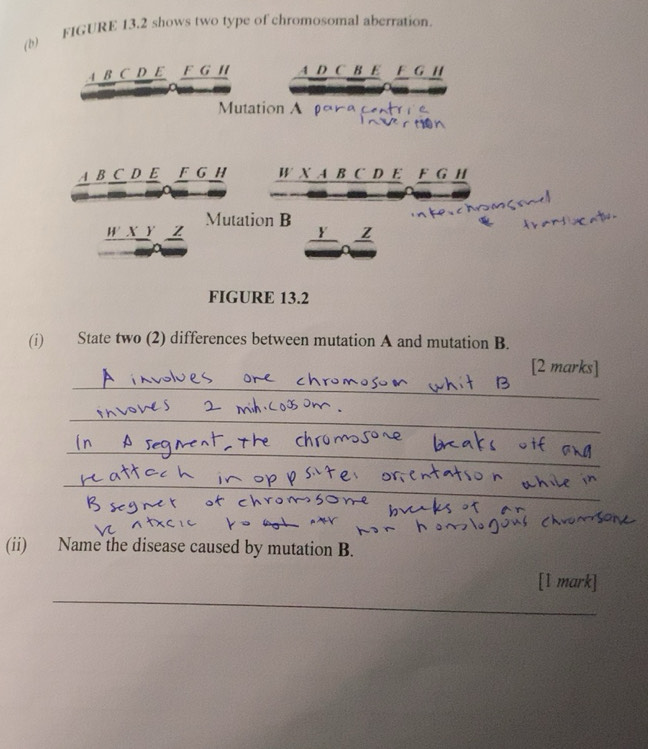 (b) FIGURE 13.2 shows two type of chromosomal aberration.
A B C D E F G H A D C B E F G H
Mutation A paracentric
Inversion
A B C D E F G H W X A B C D E F G H
interchromosomal
translocation
Mutation B
W X Y Z Y Z
FIGURE 13.2
(i) State two (2) differences between mutation A and mutation B.
[2 marks]
A involves one chromosom whit B
invoves 2
In A segment, the chromosone breaks off and
reattach in oppsite orientation while in
B segnet of chromosome breaks of an
to non homologous chromosone
(ii) Name the disease caused by mutation B.
[1 mark]